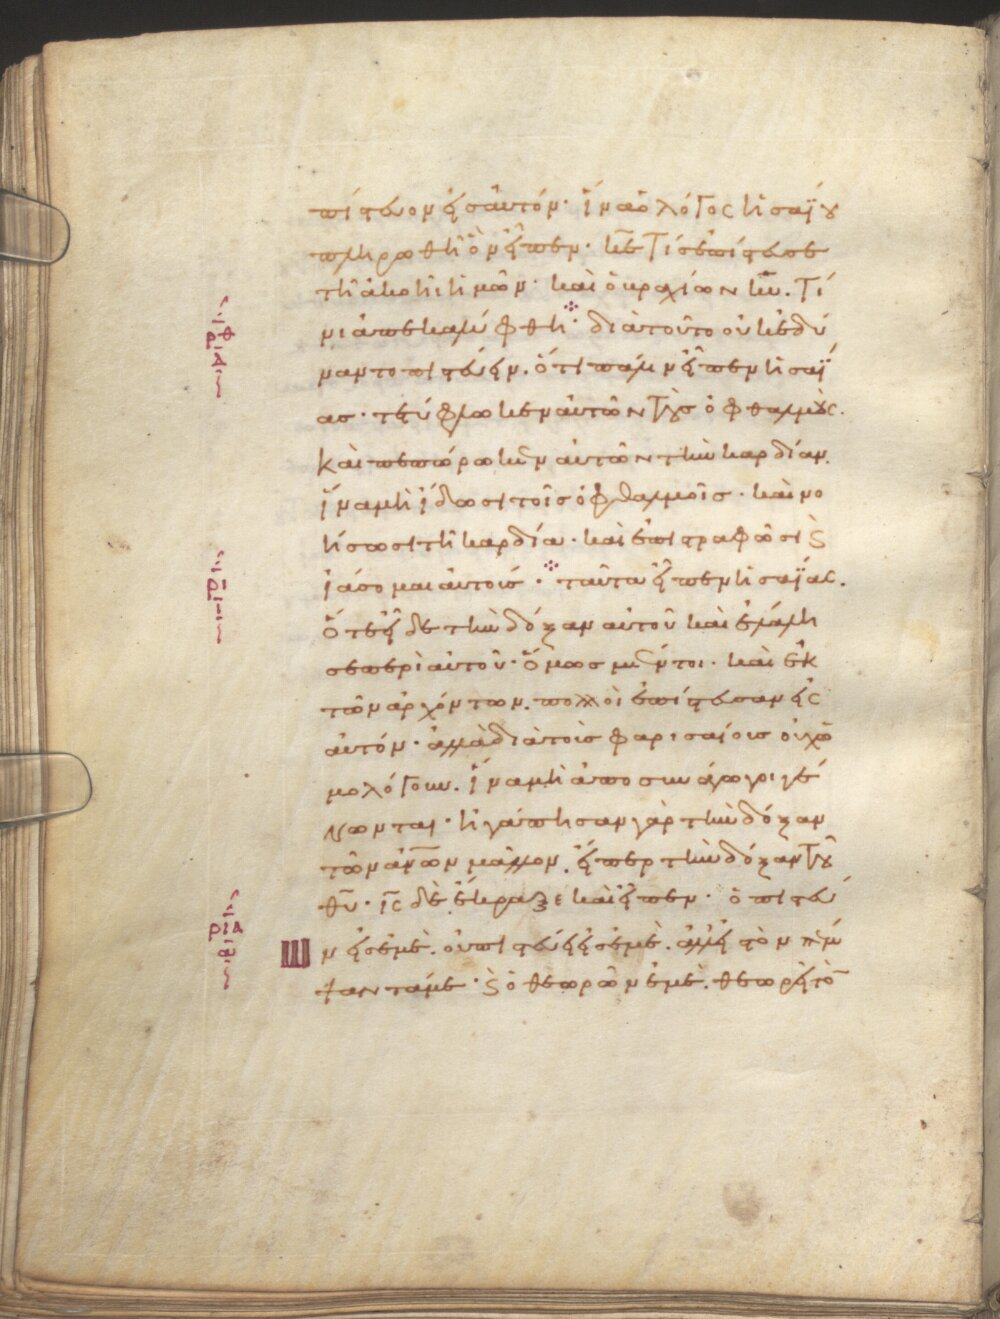 πίστευον εἰς αὐτόν· ἵνα ὁ λόγος ἡσαΐου
πληρωθῆ ὃν εἶπεν· κε̅ τίς ἐπίστευσε
τῆ ἀκοῆ ἡμῶν· καὶ ὁ βραχίων κυ̅. τί
νι ἀπεκαλύφθη· διὰ τοῦτο οὐκ ἐδύ
ναντο πιστεύειν. ὅτι πάλιν εἶπεν ἡσαΐ
ας· τετύφλωκεν αὐτῶν τοὺς ὀφθαλμοὺς.
καὶ πεπώρωκεν αὐτῶν τὴν καρδίαν.
ἵνα μὴ ἴδωσι τοῖς ὀφθαλμοῖς· καὶ νο
ήσωσι τῆ καρδία· καὶ ἐπιστραφῶσι ϗ
ἰάσομαι αὐτούς· ταῦτα εἶπεν ἡσαΐας.
ὅτε εἶδε τὴν δόξαν αὐτοῦ καὶ ἐλάλη
σε περὶ αὐτοῦ· ὅμως μέντοι· καὶ ἐκ
τῶν ἀρχόντων. πολλοὶ ἐπίστευσαν εἰς
αὐτόν· ἀλλὰ διὰ τοὺς φαρισαίους οὐχ ὡ
μολόγουν. ἵνα μὴ ἀποσυνάγωγοι γέ
νωνται· ἠγάπησαν γὰρ τὴν δόξαν
τῶν ἀν̅ων μᾶλλον. εἴπερ τὴν δόξαν τοῦ
θυ̅· ις̅ δὲ ἔκραξε καὶ εἶπεν· ὁ πιστεύ
ρια
ων εἰς ἐμὲ. οὐ πιστεύει εἰς ἐμὲ. ἀλλ' εἰς τὸν πέμ
ψαντά με· ϗ ὁ θεωρῶν ἐμὲ. θεωρεῖ τὸ̅